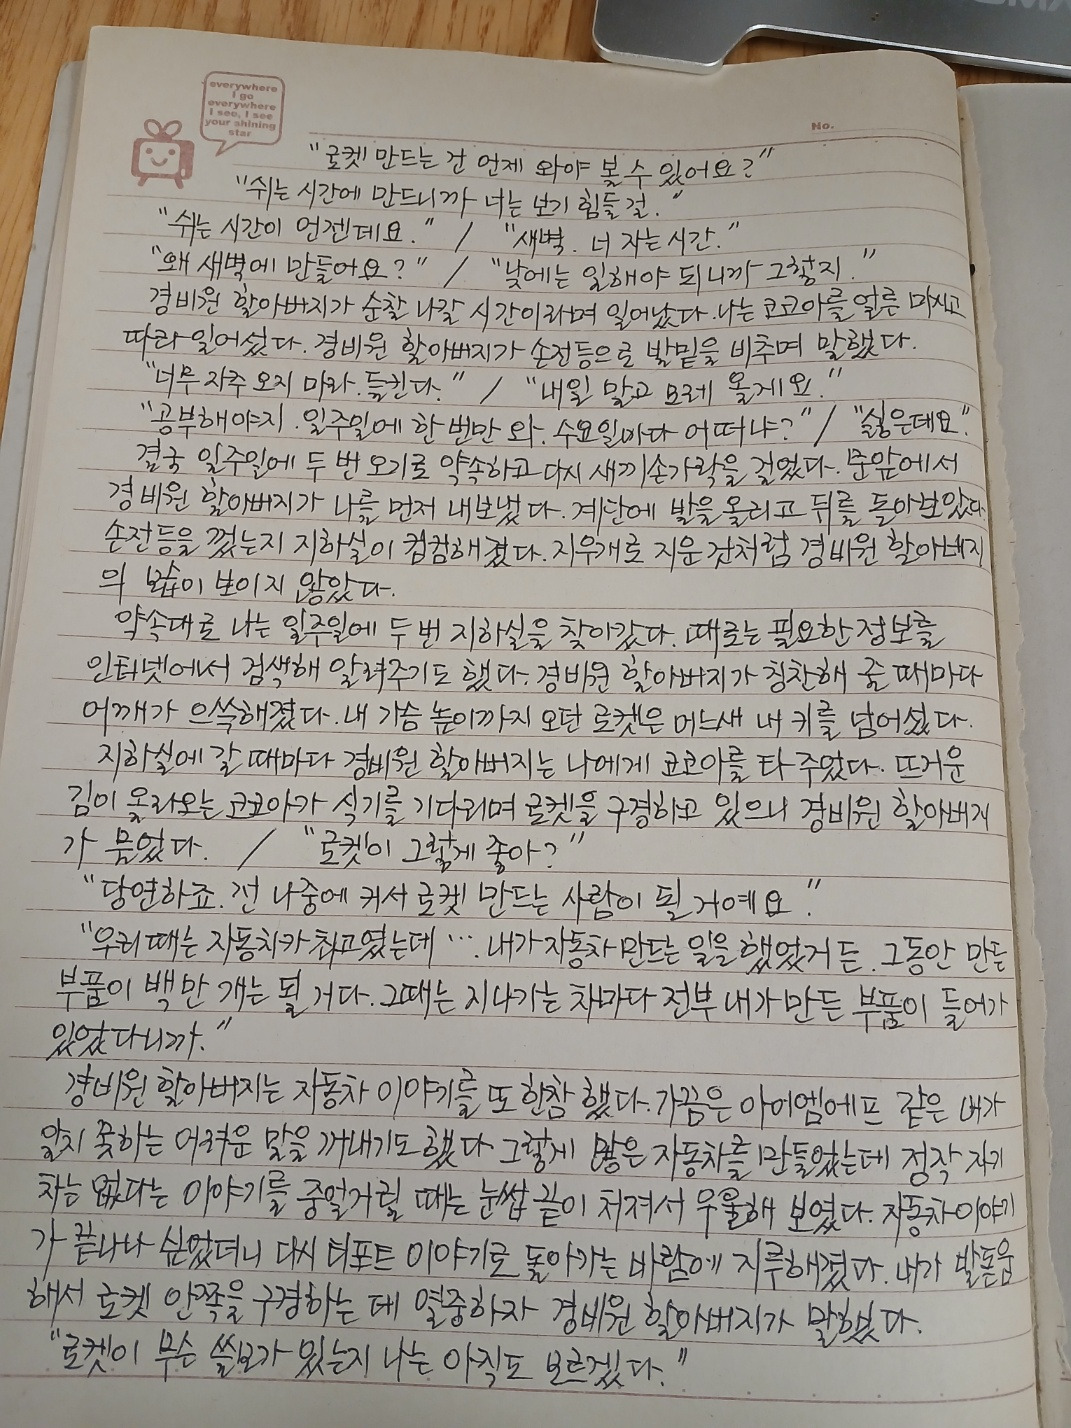 everywhere
I go
everywhere
I see, I see
your shining
star
No.
"로켓 만드는 건 언제 와야 볼 수 있어요?"
"쉬는 시간에 만드니까 너는 보기 힘들걸."
"쉬는 시간이 언젠데요." / "새벽. 너 자는 시간."
"왜 새벽에 만들어요?" / "낮에는 일해야 되니까 그렇지."
경비원 할아버지가 순찰 나갈 시간이라며 일어났다. 나는 코코아를 얼른 마시고
따라 일어섰다. 경비원 할아버지가 손전등으로 발밑을 비추며 말했다.
"너무 자주 오지 마라. 들킨다." / "내일 말고 모레 올게요."
"공부해야지. 일주일에 한 번만 와. 수요일마다 어떠냐?" / "싫은데요."
결국 일주일에 두 번 오기로 약속하고 다시 새끼손가락을 걸었다. 문앞에서
경비원 할아버지가 나를 먼저 내보냈다. 계단에 발을 올리고 뒤를 돌아보았다.
손전등을 껐는지 지하실이 컴컴해졌다. 지우개로 지운 것처럼 경비원 할아버지
의 모습이 보이지 않았다.
약속대로 나는 일주일에 두 번 지하실을 찾아갔다. 때로는 필요한 정보를
인터넷에서 검색해 알려주기도 했다. 경비원 할아버지가 칭찬해 줄 때마다
어깨가 으쓱해졌다. 내 가슴 높이까지 오던 로켓은 어느새 내 키를 넘어섰다.
지하실에 갈 때마다 경비원 할아버지는 나에게 코코아를 타 주었다. 뜨거운
김이 올라오는 코코아가 식기를 기다리며 로켓을 구경하고 있으니 경비원 할아버지
가 물었다. / "로켓이 그렇게 좋아?"
"당연하죠. 전 나중에 커서 로켓 만드는 사람이 될 거예요."
"우리 때는 자동차가 최고였는데 … 내가 자동차 만드는 일을 했었거든. 그동안 만든
부품이 백만 개는 될 거다. 그때는 지나가는 차마다 전부 내가 만든 부품이 들어가
있었다니까."
경비원 할아버지는 자동차 이야기를 또 한참 했다. 가끔은 아이엠에프 같은 내가
알지 못하는 어려운 말을 꺼내기도 했다 그렇게 많은 자동차를 만들었는데 정작 자기
차는 없다는 이야기를 중얼거릴 때는 눈썹 끝이 처져서 우울해 보였다. 자동차 이야기
가 끝나나 싶었더니 다시 티포트 이야기로 돌아가는 바람에 지루해졌다. 내가 발돋움
해서 로켓 안쪽을 구경하는 데 열중하자 경비원 할아버지가 말했다.
"로켓이 무슨 쓸모가 있는지 나는 아직도 모르겠다."